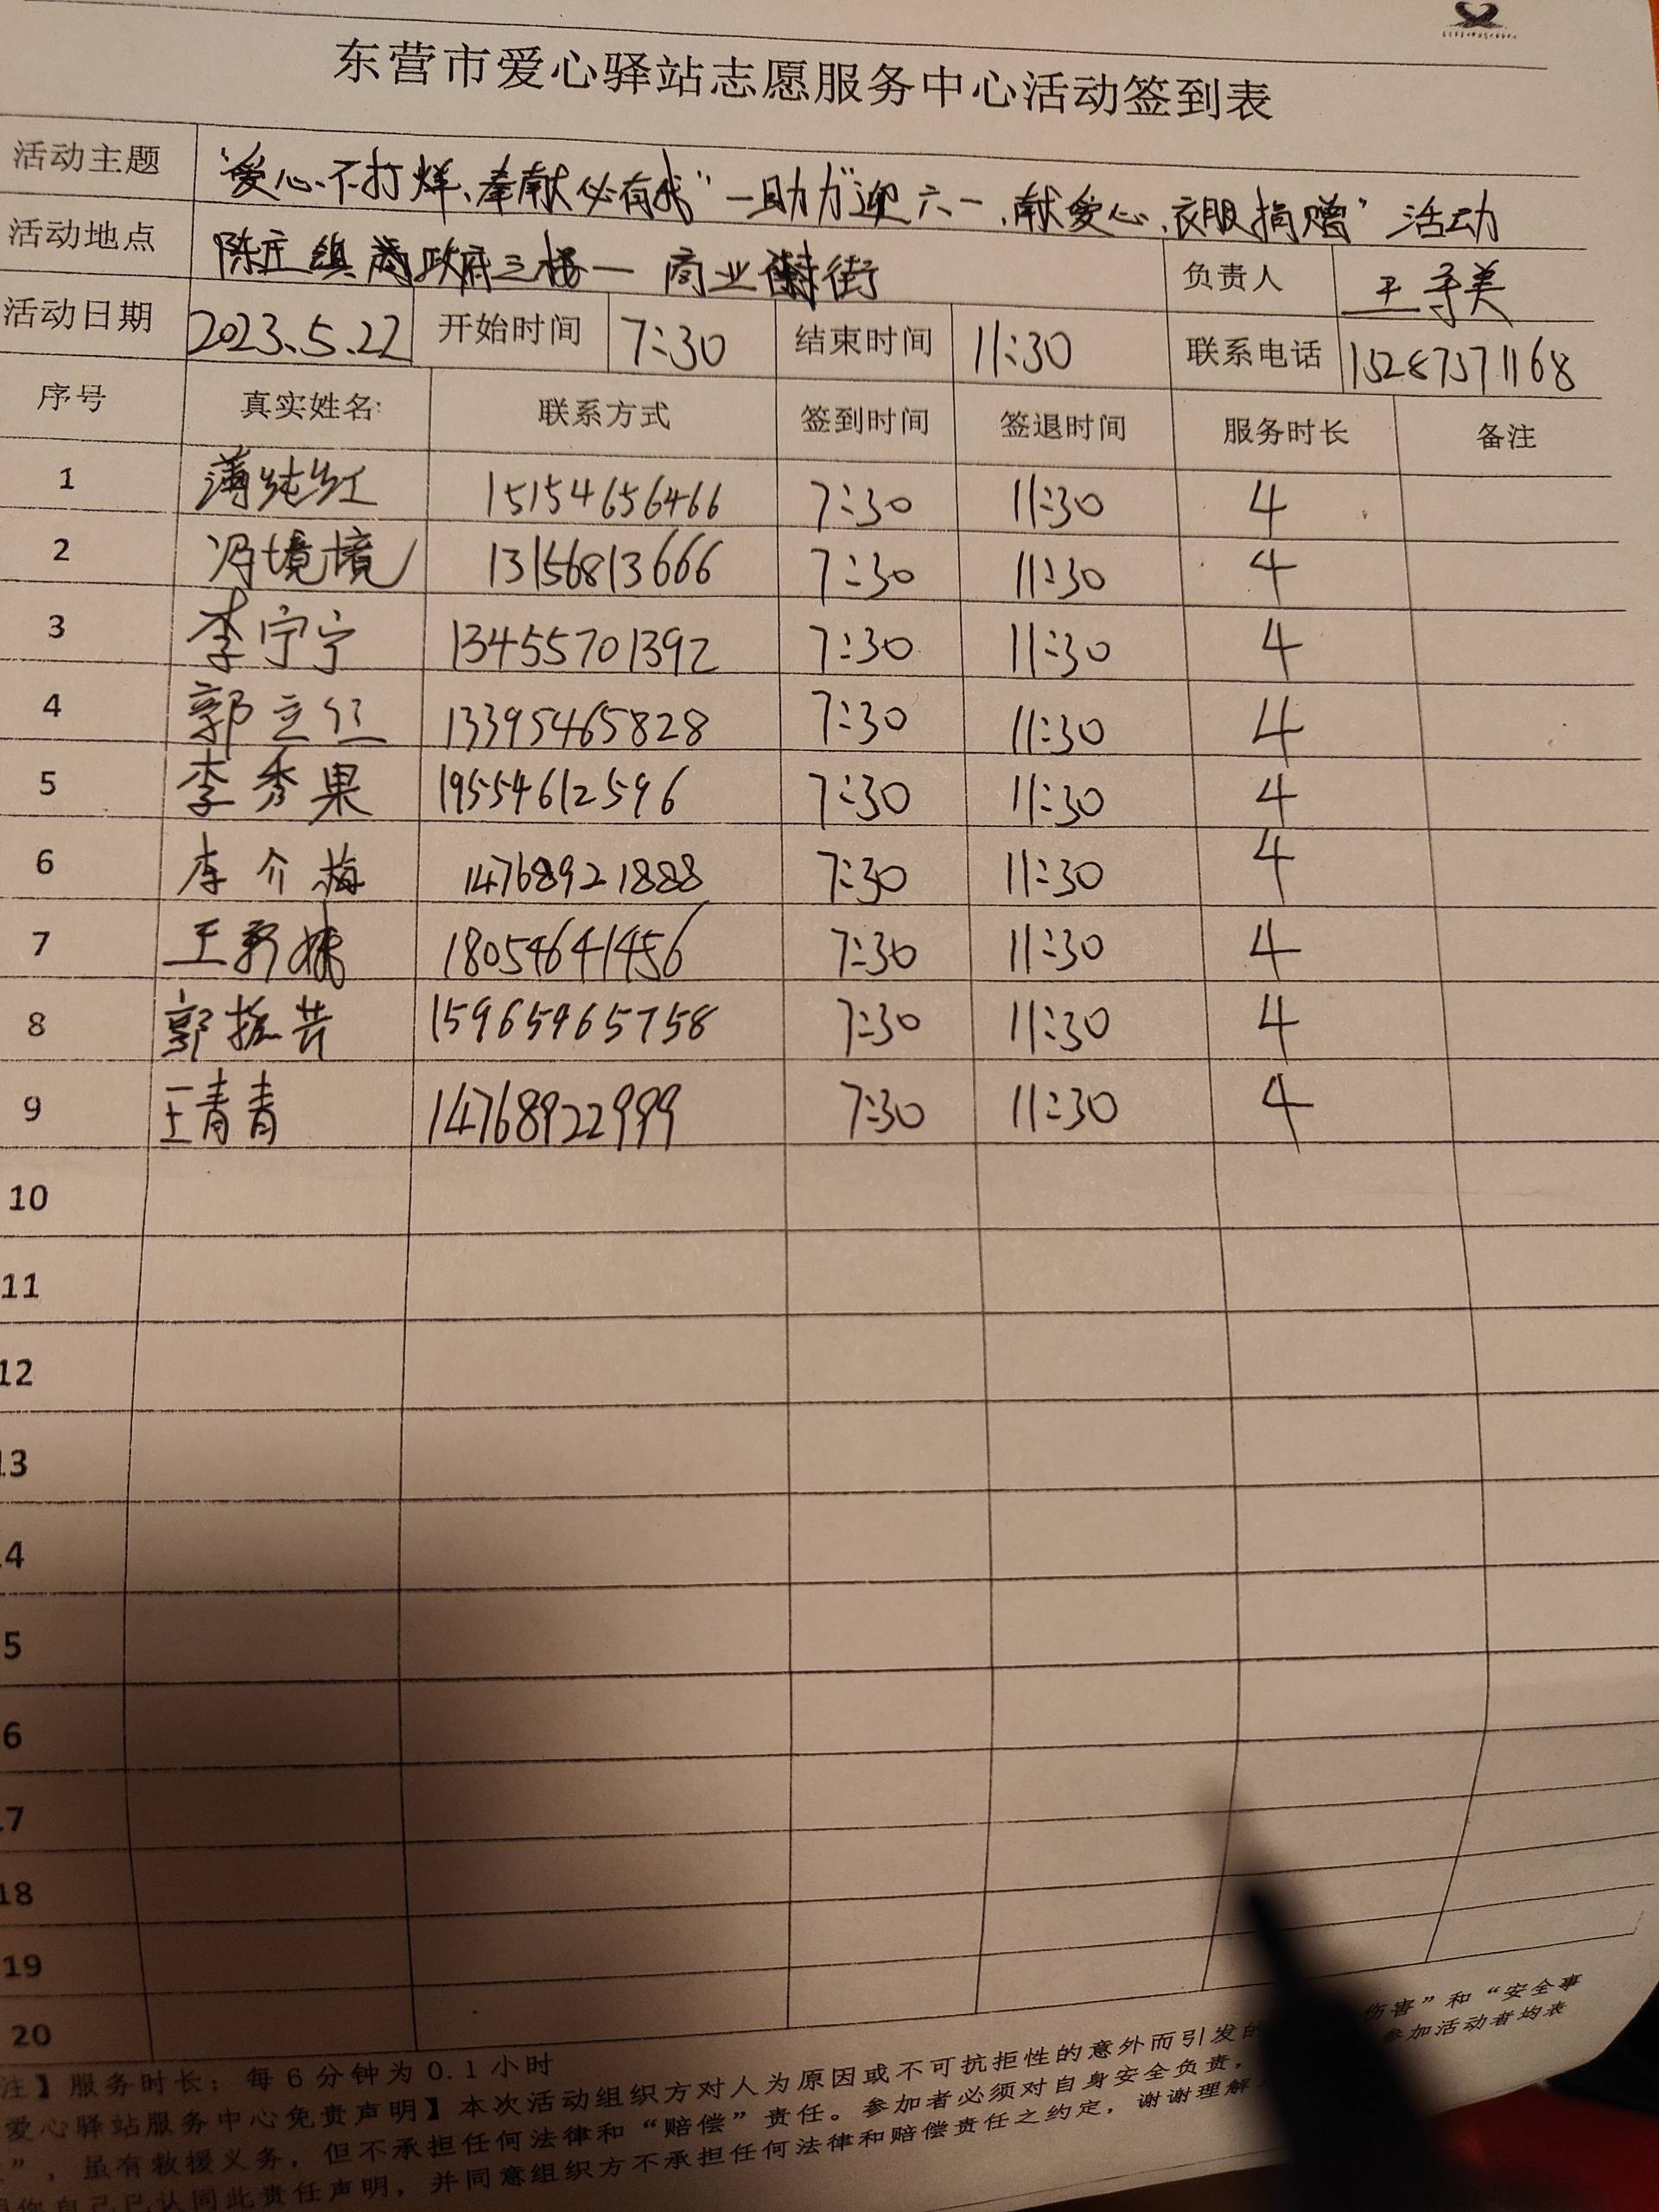 东营市爱心驿站志愿服务中心活动签到表
活动主题 “爱心不打烊、奉献必有我”—助力“迎六一、献爱心、衣服捐赠”活动
活动地点 陈庄镇 政府三楼—商业街 负责人 王 美
活动日期 2023.5.22 开始时间 7:30 结束时间 11:30 联系电话 15287371168
序号 真实姓名: 联系方式 签到时间 签退时间 服务时长 备注
1 薄纯红 15154656466 7:30 11:30 4
2 冯境境 13156813666 7:30 11:30 4
3 李宁宁 13455701392 7:30 11:30 4
4 郭立红 13395465828 7:30 11:30 4
5 李秀果 19554612596 7:30 11:30 4
6 李介梅 14768921888 7:30 11:30 4
7 王 18054641456 7:30 11:30 4
8 郭振芸 15965965758 7:30 11:30 4
9 王青青 14768922999 7:30 11:30 4
10
11
12
13
4
5
6
7
18
19
20
注】服务时长：每6分钟为0.1小时
爱心驿站服务中心免责声明】本次活动组织方对人为原因或不可抗拒性的意外而引发的 伤害”和“安全事
”，虽有救援义务，但不承担任何法律和“赔偿”责任。参加者必须对自身安全负责， 参加活动者均表
你自己已认同此责任声明，并同意组织方不承担任何法律和赔偿责任之约定，谢谢理解